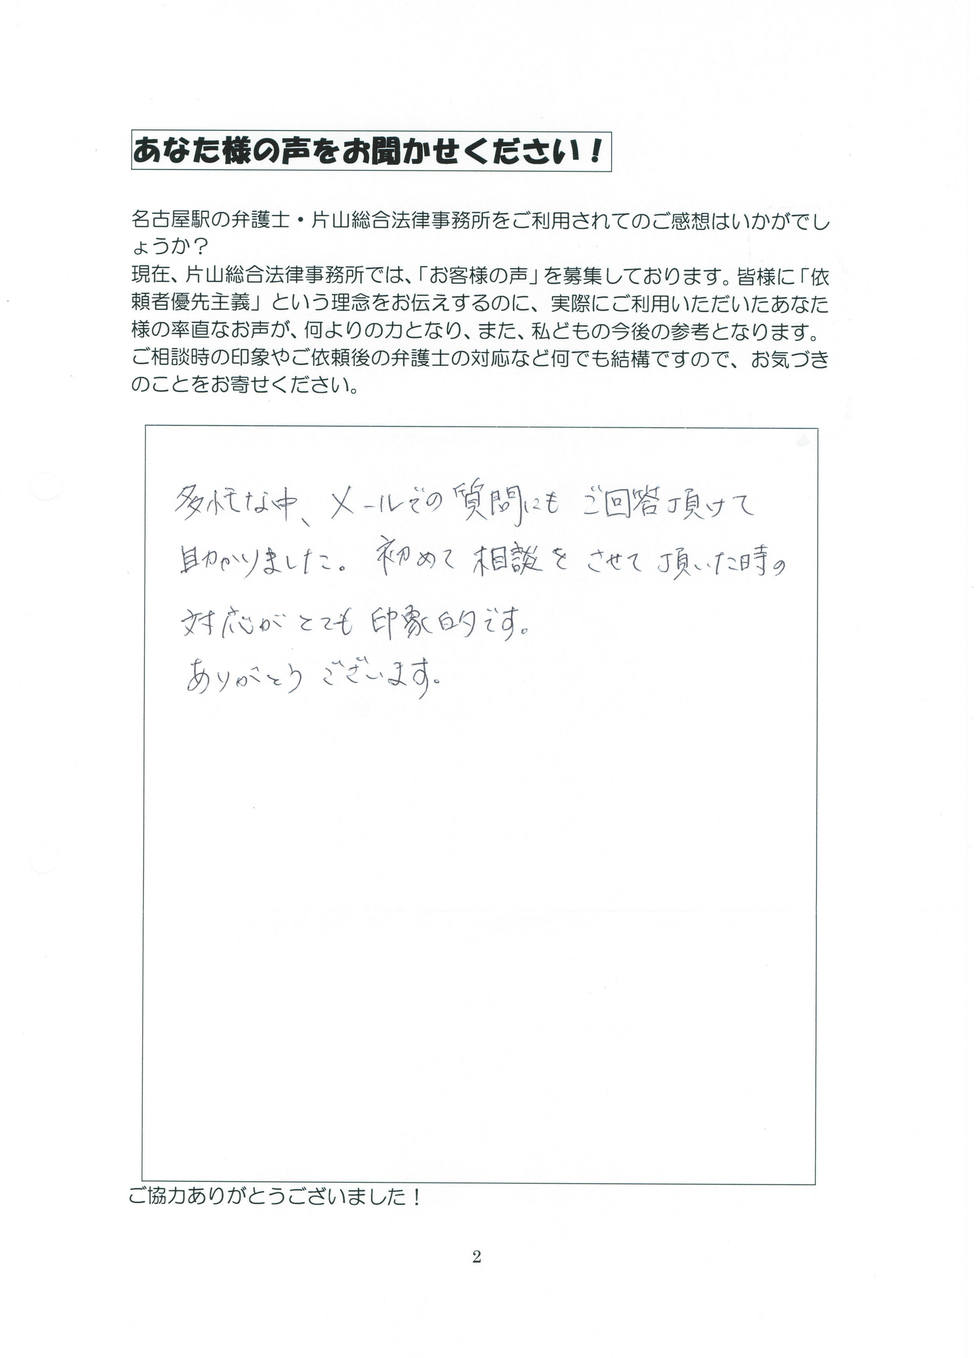 あなた様の声をお聞かせください！
名古屋駅の弁護士・片山総合法律事務所をご利用されてのご感想はいかがでし
ょうか？
現在、片山総合法律事務所では、「お客様の声」を募集しております。皆様に「依
頼者優先主義」という理念をお伝えするのに、実際にご利用いただいたあなた
様の率直なお声が、何よりの力となり、また、私どもの今後の参考となります。
ご相談時の印象やご依頼後の弁護士の対応など何でも結構ですので、お気づき
のことをお寄せください。
多忙な中、メールでの質問にもご回答頂けて
助かりました。初めて相談をさせて頂いた時の
対応がとても印象的です。
ありがとうございます。
ご協力ありがとうございました！
2